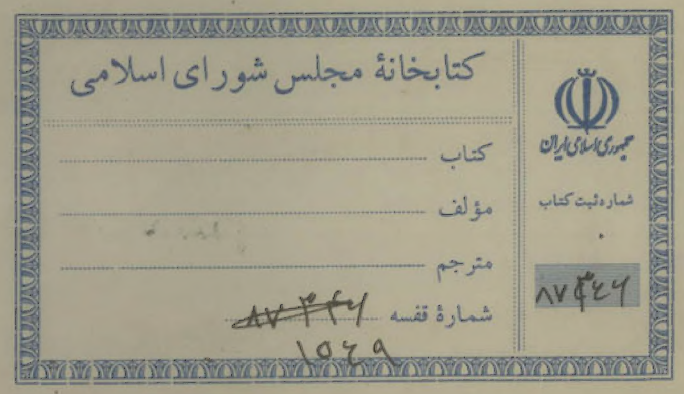 کتابخانهٔ مجلس شورای اسلامی
کتاب
مؤلف
مترجم
شمارهٔ قفسه ۸۷۳۴۶
۱۵۴۹
جمهوری اسلامی ایران
شماره ثبت کتاب
۸۷۳۴۶